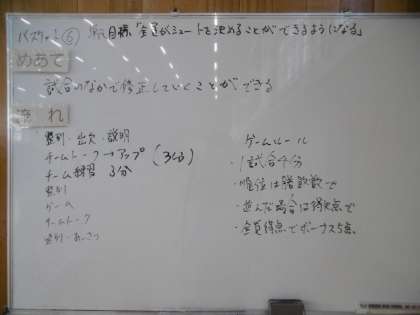 バスケット⑥ 単元目標「全員がシュートを決めることができるようになる」
めあて
試合のなかで修正していくことができる
流れ
整列・出欠・説明
チームトーク→アップ（3分）
チーム練習 3分
整列
ゲーム
チームトーク
整列・あいさつ
ゲームルール
・1試合4分
・順位は勝敗数で
・並んだ場合は得失点で
・全員得点でボーナス5点